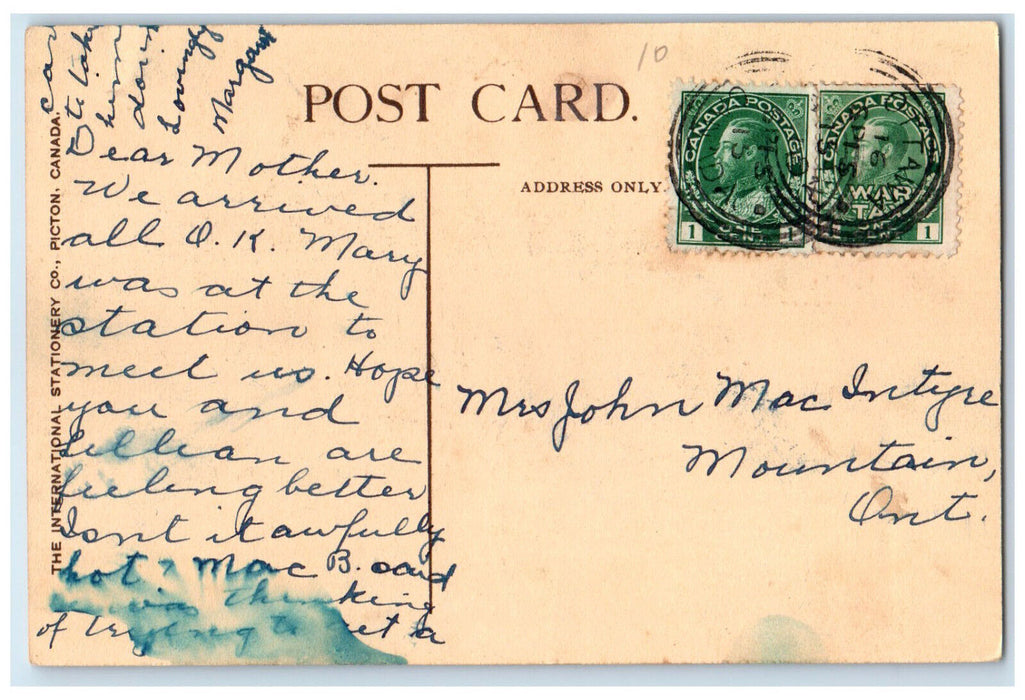 POST CARD.
ADDRESS ONLY.
THE INTERNATIONAL STATIONERY CO., PICTON, CANADA.
CANADA POSTAGE
1 1
CANADA POSTAGE
WAR
TAX
1
10
Dear Mother.
We arrived
all O.K. Mary
was at the
station to
meet us. Hope
you and
Lillian are
feeling better
Isnt it awfully
hot? Mac B. said
he was thinking
of trying to get a
car
to take
home
Lovingly
Margaret
Mrs John Mac Intyre
Mountain,
Ont.